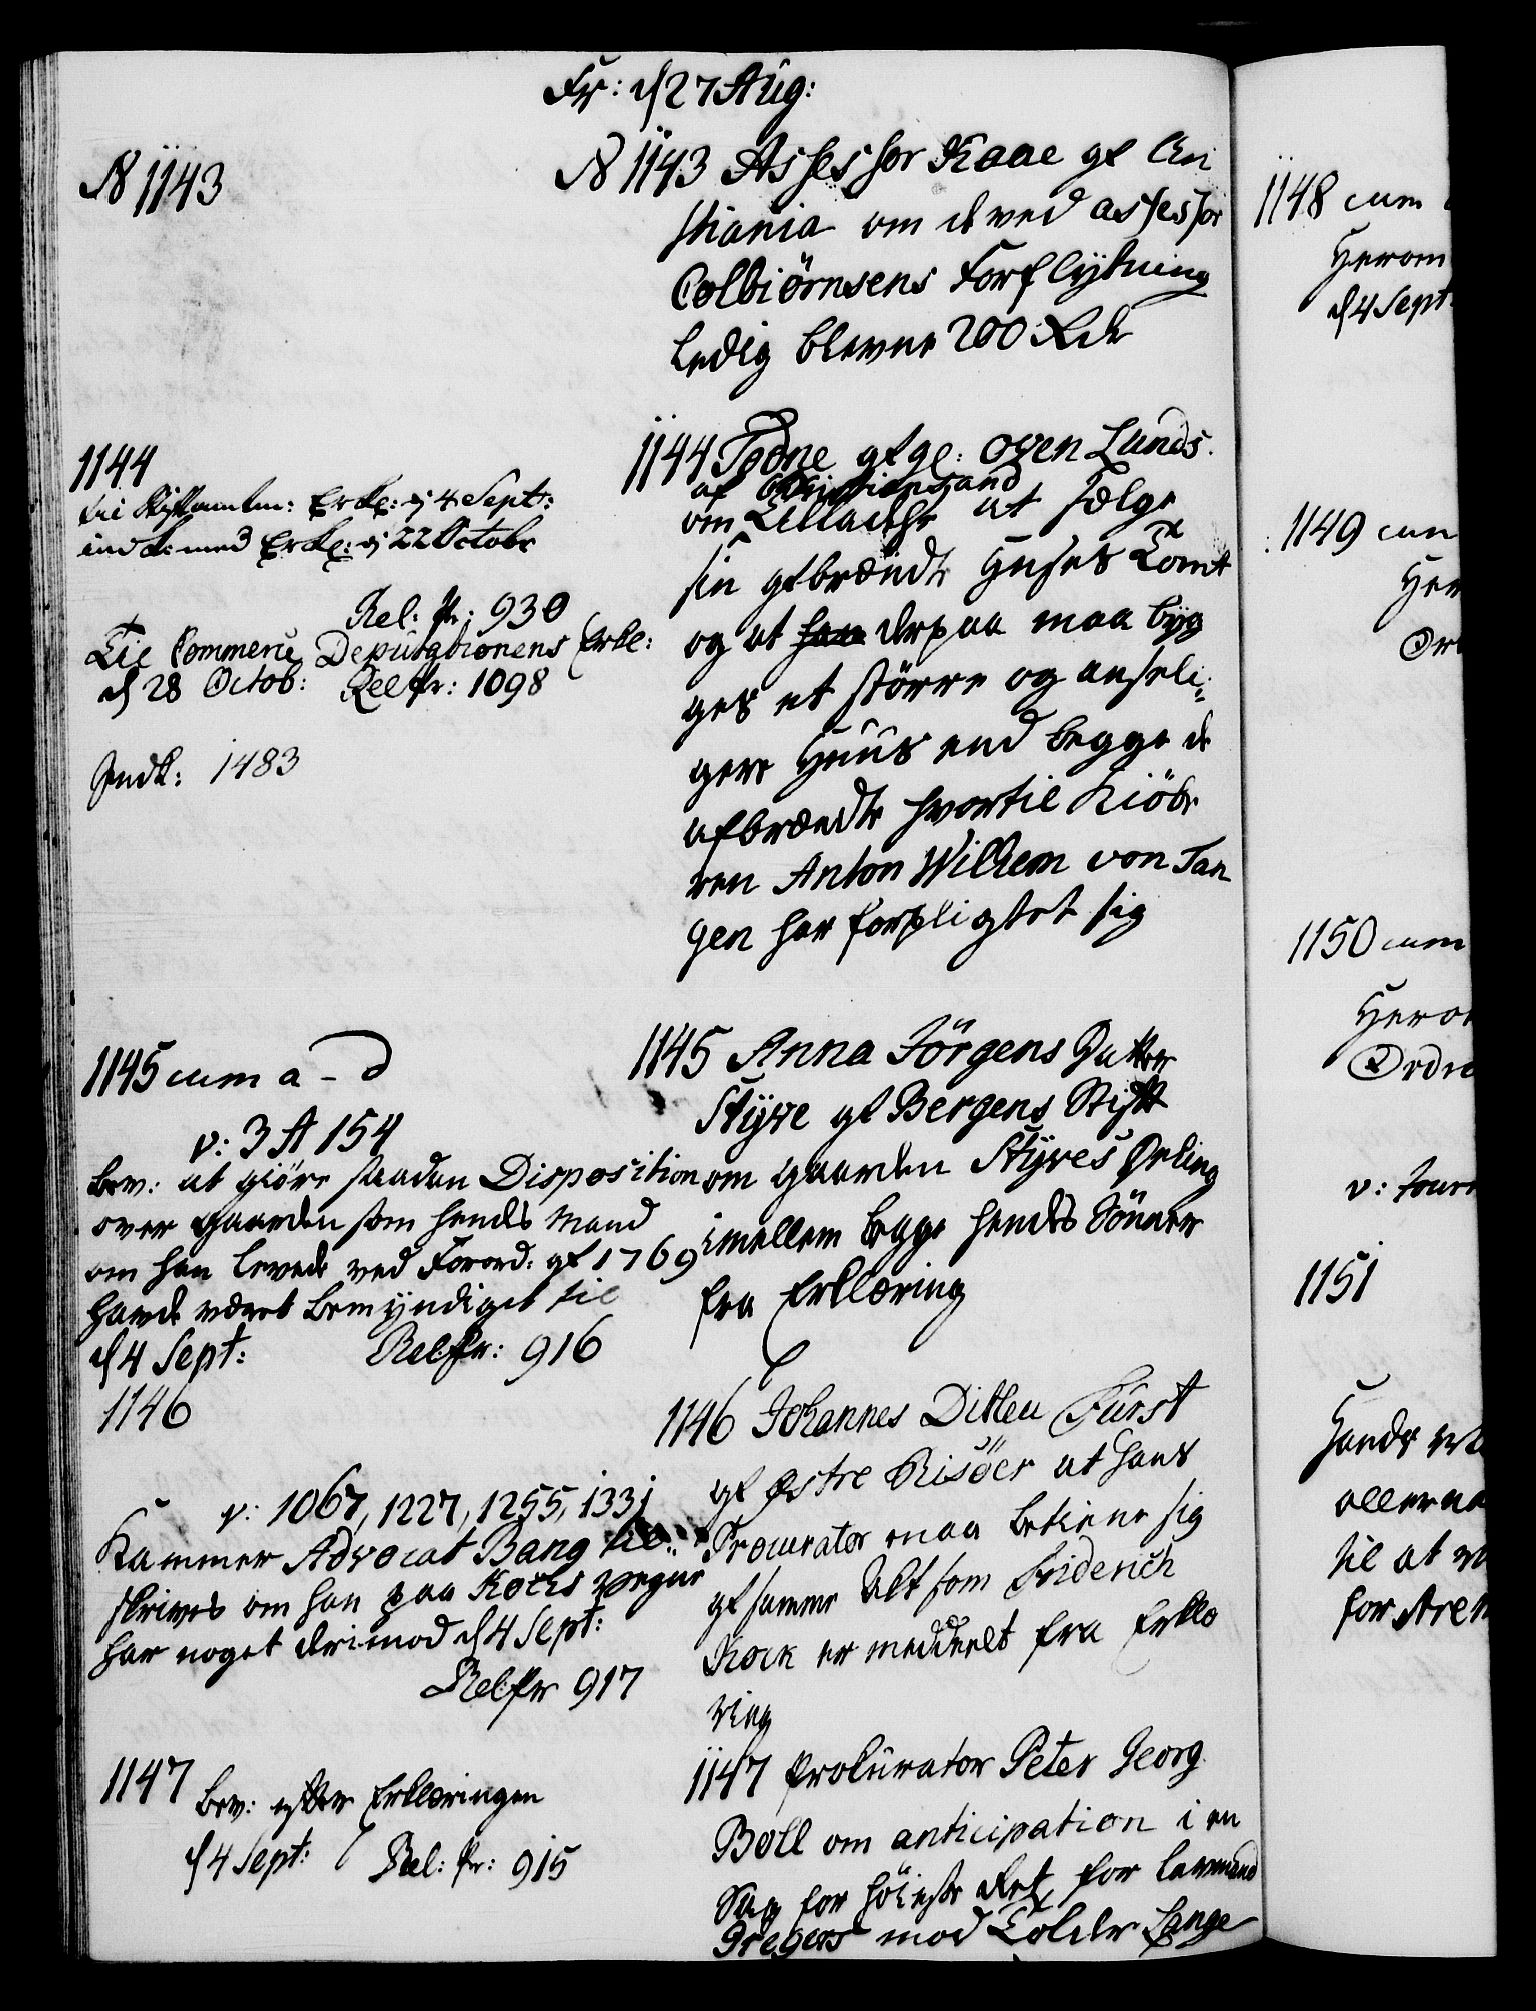 Fr: d 27 Aug:
N 1143
N 1143 Assessor Kaae af Chri
stiania om de ved assessor
Colbiörnsens Forflÿtning
ledig blevne 200 Rdr
1144
til Stiftamtm: Erkl: d 4 Sept:
indk: med Erkl: d 22 Octobr
Rel: Pr: 930
Til Commerce Deputationens Erkl:
d 28 Octob: Rel Pr: 1098
Indk: 1483
1144 Tødne afge: oven Lunds.
af Christiansand
om Tilladelse at sælge
sin afbrændte Huses Tomt
og at han derpaa maa byg
ges et större og anseli¬
gere Huus end begge de
afbrændte hvortil Kiöbe
ren Anton Wilhem von Tan
gen har forpligtet sig
1145 cum a - d
v: 3 A 154
bev: at giöre saadan Disposition
over gaarden som hendes Mand
om han levede ved Forord: af 1769
havde været bemÿndiget til
d 4 Sept: Rel Pr: 916
1145 Anna Jörgens Datter
Stÿve af Bergens Stift
om gaarden Stÿves Deling
imellem begge hendes Sönner
fra Erklæring
1146
v: 1067, 1227, 1255, 1331
Kammer Advocat Bang til¬
skrives om han paa Kochs vegne
har noget derimod d 4 Sept:
Rel Pr 917
1146 Johannes Ditleu Fürst
af Østre Risöer at hans
Procurator maa betiene sig
af samme Alt som Friderich
Kock er meddeelt fra Erklæ
ring
1147 bev: efter Erklæringen
d 4 Sept: Rel: Pr: 915
1147 Procurator Peter Georg
Boll om anticipation i en
Sag for höieste Ret for Lavmand
Gregers mod Tolder Lange
1148 cum
Herom
d 4 Sept:
1149 cum
1150 cum
Ordre
v: Journ
1151
til at
for Aren